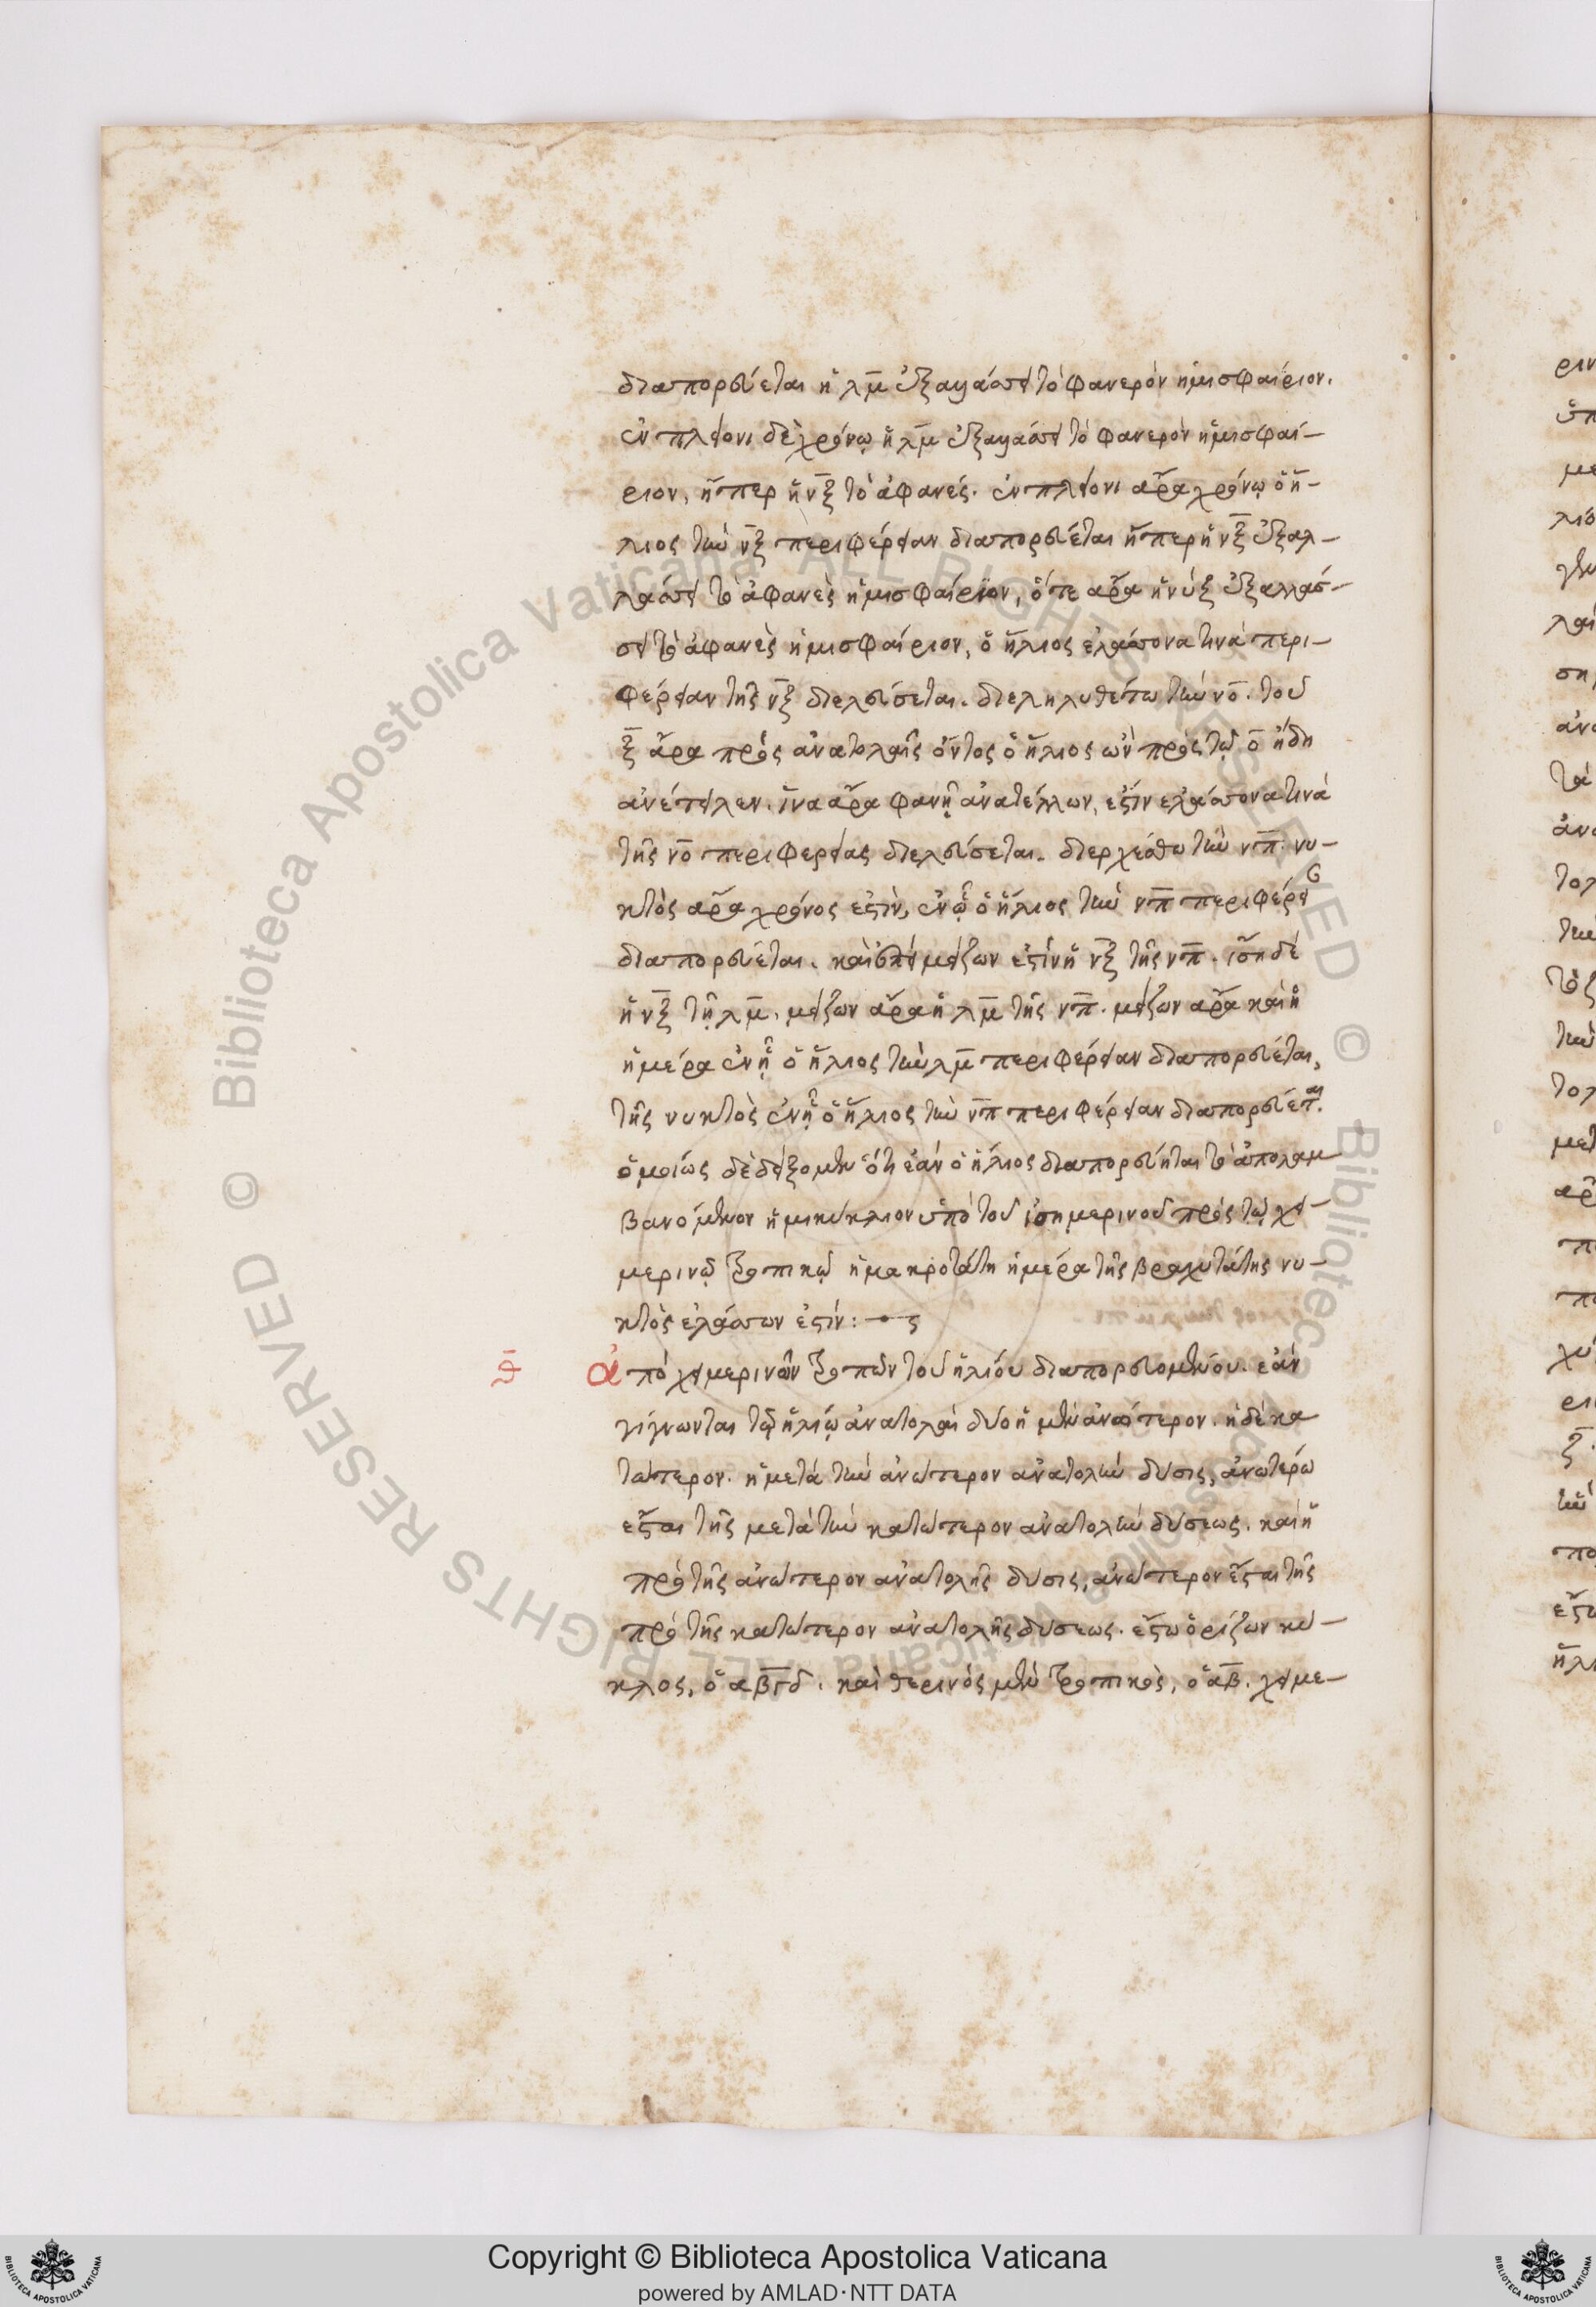 διαπορεύεται ἡ λμ ἐξαλλάσσει τὸ φανερὸν ἡμισφαίριον.
ἐν πλείονι δὲ χρόνῳ ἡ λμ ἐξαλλάσσει τὸ φανερὸν ἡμισφαί–
ριον, ἤπερ ἡ νξ τὸ ἀφανές. ἐν πλείονι ἄρα χρόνῳ ὁ ἥ–
λιος τὴν νξ περιφέρειαν διαπορεύεται ἤπερ ἡ νξ ἐξαλ–
λάσσει τὸ ἀφανὲς ἡμισφαίριον, ὅτε ἄρα ἡ νὺξ ἐξαλλάσ–
σει τὸ ἀφανὲς ἡμισφαίριον, ὁ ἥλιος ἐλάσσονα τινὰ περι–
φέρειαν τῆς νξ διελεύσεται. διεληλυθέτω τὴν νο. τοῦ
ξ ἄρα πρὸς ἀνατολαῖς ὄντος ὁ ἥλιος ὢν πρὸς τῷ ο ἤδη
ἀνέτειλεν. ἵνα ἄρα φανῇ ἀνατέλλων, ἐστὶν ἐλάσσονα τινὰ
τῆς νο περιφερείας διελεύσεται. διερχέσθω τὴν νπ. νυ–
κτὸς ἄρα χρόνος ἐστὶν, ἐν ᾧ ὁ ἥλιος τὴν νπ περιφέρει
διαπορεύεται. καὶ ἐπεὶ μείζων ἐστὶν ἡ νξ τῆς νπ. ἴση δὲ
ἡ νξ τῇ λμ, μείζων ἄρα ἡ λμ τῆς νπ. μείζων ἄρα καὶ ἡ
ἡμέρα ἐν ᾗ ὁ ἥλιος τὴν λμ περιφέρειαν διαπορεύεται,
τῆς νυκτὸς ἐν ᾗ ὁ ἥλιος τὴν νπ περιφέρειαν διαπορεύεται.
ὁμοίως δὲ δείξομεν ὅτι ἐὰν ὁ ἥλιος διαπορεύηται τὸ ἀπολαμ
βανόμενον ἡμικύκλιον ὑπὸ τοῦ ἰσημερινοῦ πρὸς τῷ χει–
μερινῷ τροπικῷ ἡ μακροτάτη ἡμέρα τῆς βραχυτάτης νυ–
κτὸς ἐλάσσων ἐστίν: –
ἀπὸ χειμερινῶν τροπῶν τοῦ ἡλίου διαπορευομένου. ἐὰν
γίγνωνται τῷ ἡλίῳ ἀνατολαὶ δύο ἡ μὲν ἀνώτερον. ἡ δὲ κα
τώτερον. ἡ μετὰ τὴν ἀνώτερον ἀνατολὴν δύσις, ἀνωτέρω
ἔσται τῆς μετὰ τὴν κατώτερον ἀνατολὴν δύσεως. καὶ ἡ
πρὸ τῆς ἀνώτερον ἀνατολῆς δύσις, ἀνώτερον ἔσται τῆς
πρὸ τῆς κατώτερον ἀνατολῆς δύσεως. ἔστω ὁρίζων κύ–
κλος, ὁ αβγδ. καὶ θερινὸς μὲν τροπικὸς, ὁ αβ. χειμε–
Copyright © Biblioteca Apostolica Vaticana
powered by AMLAD·NTT DATA